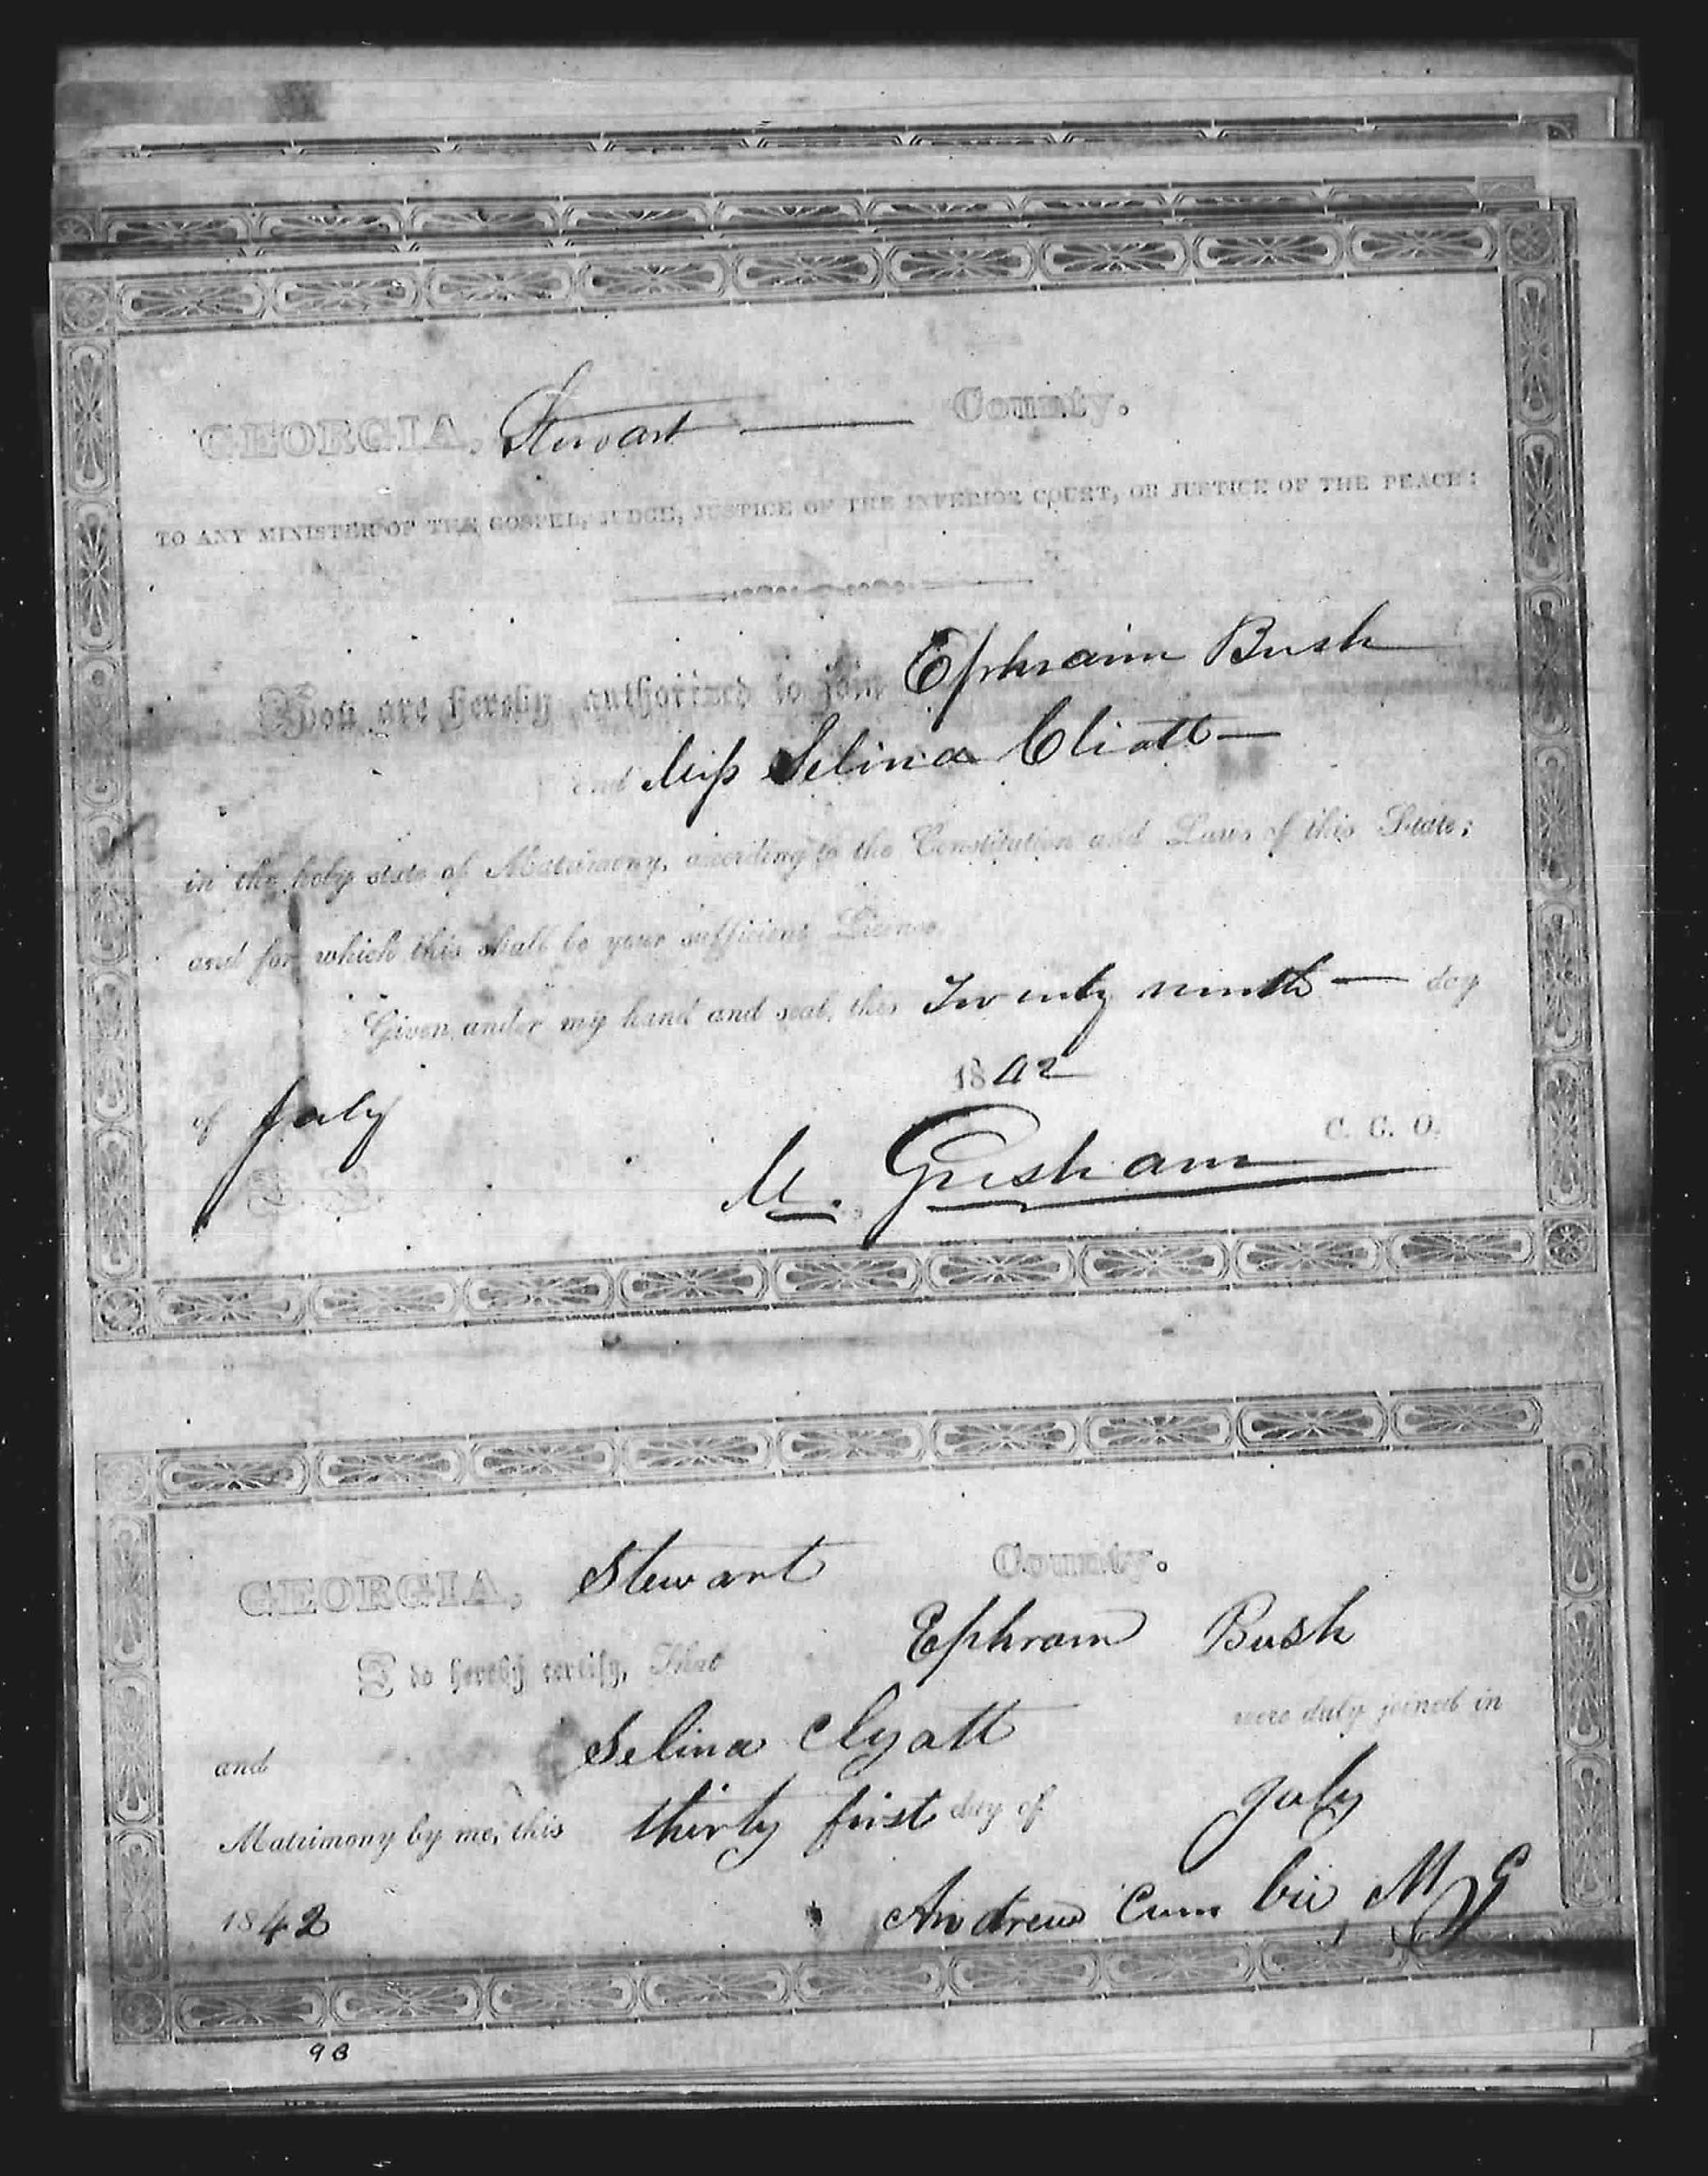 GEORGIA, Stewart County.
TO ANY MINISTER OF THE GOSPEL, JUDGE, JUSTICE OF THE INFERIOR COURT, OR JUSTICE OF THE PEACE:
You are hereby authorized to join Ephraim Bush
and Miss Selina Cliatt
in the holy state of Matrimony, according to the Constitution and Laws of this State;
and for which this shall be your sufficient License.
Given under my hand and seal, this Twenty ninth day
of July 1842
L. S. M. Gresham C. C. O.
GEORGIA, Stewart County.
I do hereby certify, That Ephram Bush
and Selina Clyatt were duly joined in
Matrimony by me, this thirty first day of July
1842 Andrew Cumbie M G
9B